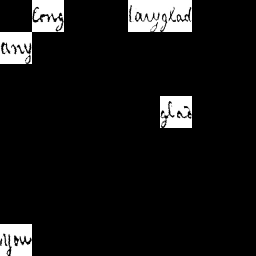 Cong laryglad
any
glad
you